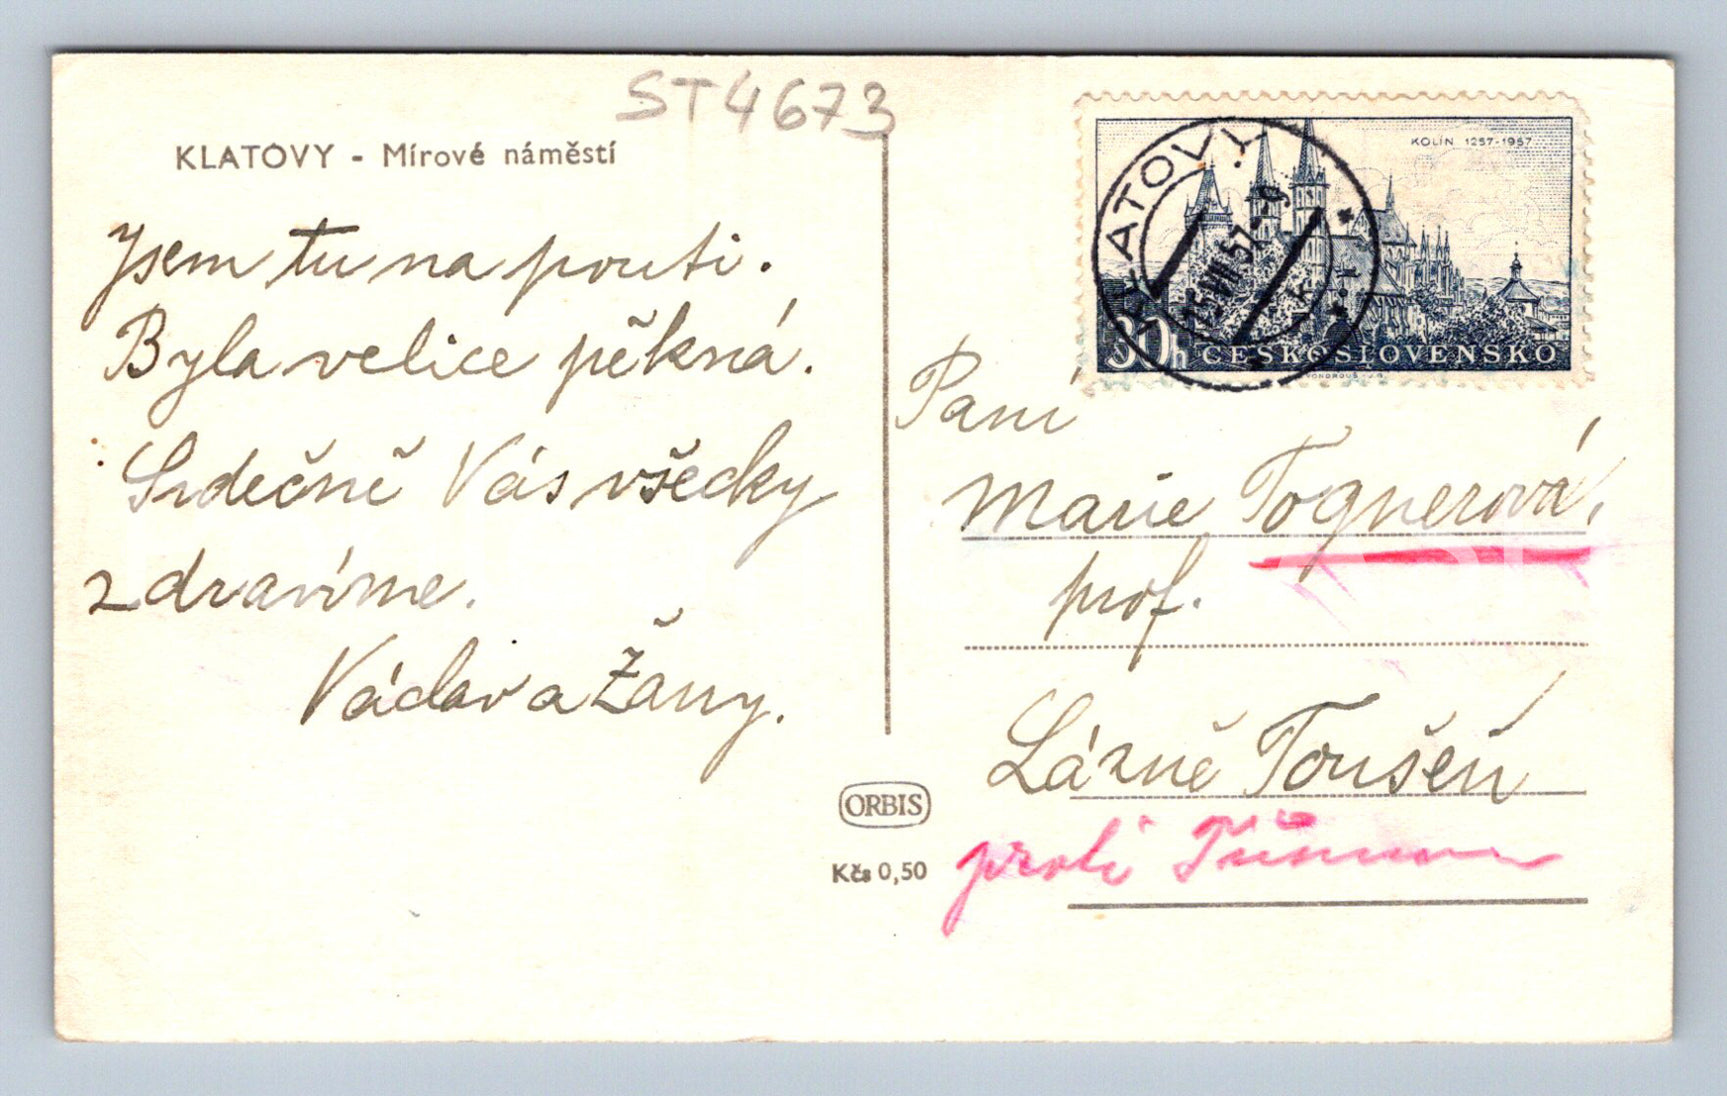 ST4673
KLATOVY - Mírové náměstí
Jsem tu na pouti.
Byla velice pěkná.
Srdečně Vás všecky
zdravíme.
Václav a Žany.
KOLÍN 1257-1957
KLATOVY 1
15.VII.57-9
1k
30h ČESKOSLOVENSKO
Paní
Marie Tognerová,
prof.
Lázně Toušeň
proti
ORBIS
Kčs 0,50